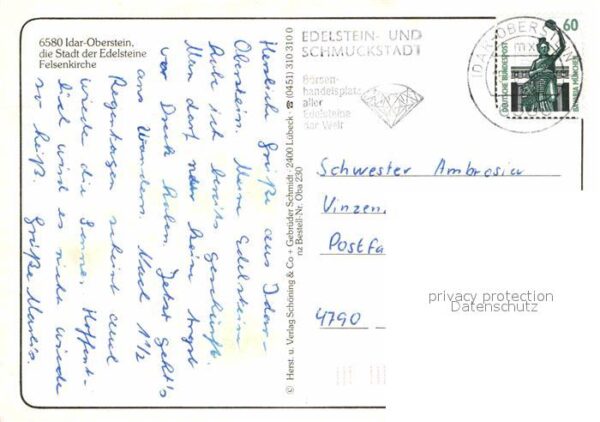 6580 Idar-Oberstein,
die Stadt der Edelsteine
Felsenkirche
Herzliche Grüße aus Idar-
Oberstein. Mein Edelstein
habe ich bereits geschürft.
Man darf nur keine Angst
vor Dreck haben. Jetzt geht's
ans Wandern. Nach 1 1/2
Regentagen scheint auch
wieder die Sonne. Hoffent-
lich wird es nicht wieder
so heiß. Grüße Marlis.
© Herst. u. Verlag Schöning & Co + Gebrüder Schmidt · 2400 Lübeck · ☎ (0451) 310 310 0
nz Bestell-Nr. Oba 230
EDELSTEIN- UND
SCHMUCKSTADT
Börsen-
handelsplatz
aller
Edelsteine
der Welt
IDAR-OBERSTEIN
mx
60
DEUTSCHE BUNDESPOST
BAVARIA MÜNCHEN
Schwester Ambrosia
Vinzen
Postfa
4790
privacy protection
Datenschutz